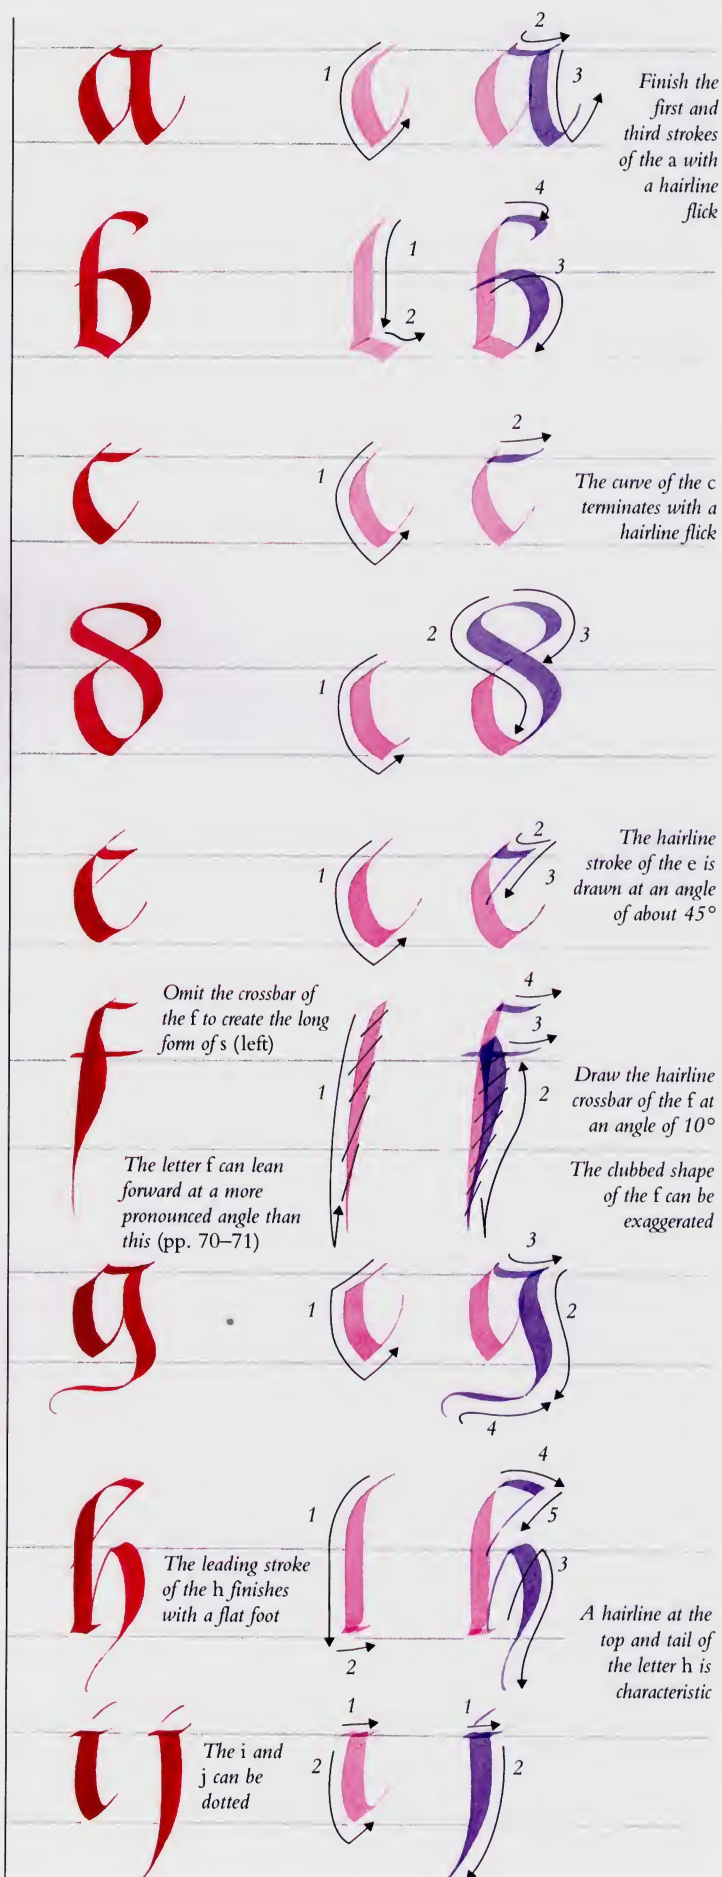 a 1 a 2 3
Finish the
first and
third strokes
of the a with
a hairline
flick
b 1 2 b 3 4
c 1 c 2
The curve of the c
terminates with a
hairline flick
d 1 d 2 3
e 1 e 2 3
The hairline
stroke of the e is
drawn at an angle
of about 45°
f 1 f 2 3 4
Omit the crossbar of
the f to create the long
form of s (left)
The letter f can lean
forward at a more
pronounced angle than
this (pp. 70–71)
Draw the hairline
crossbar of the f at
an angle of 10°
The clubbed shape
of the f can be
exaggerated
g 1 g 2 3 4
h 1 2 h 3 4 5
The leading stroke
of the h finishes
with a flat foot
A hairline at the
top and tail of
the letter h is
characteristic
i j 1 2 i 1 2 j
The i and
j can be
dotted